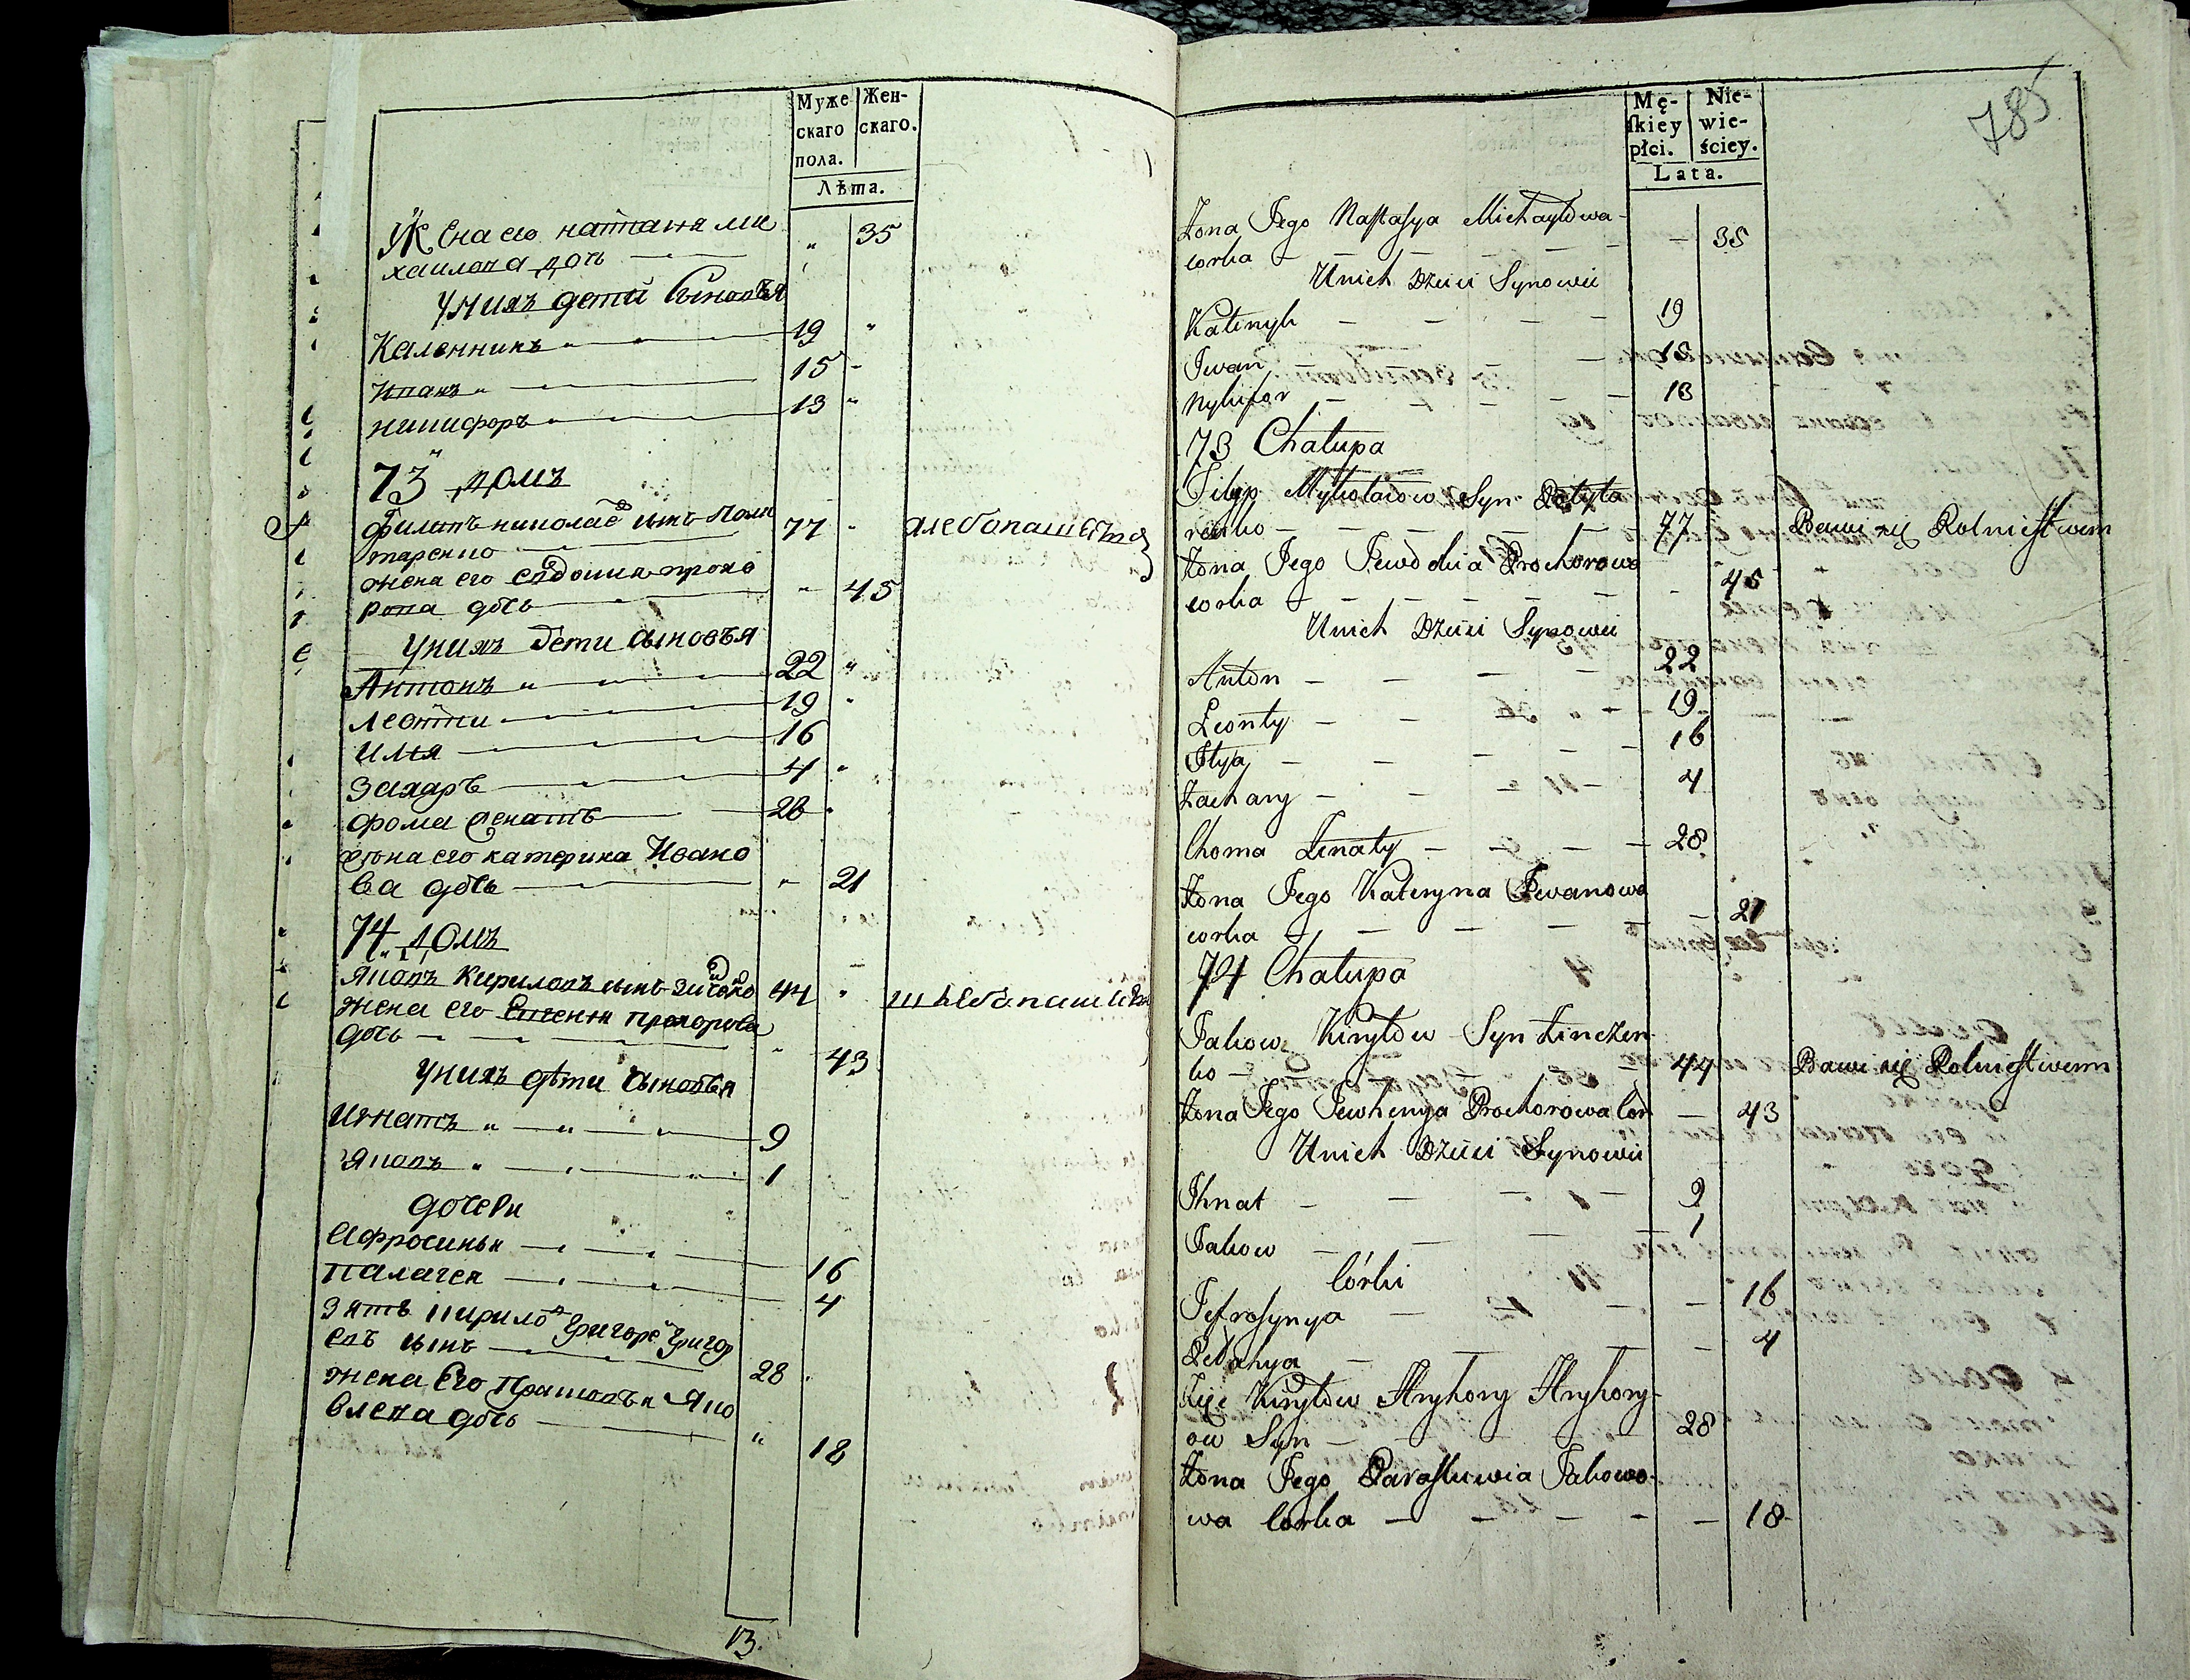 Муже
скаго
пола.
Жен-
скаго.
Лѣта.
Жена его настасия ми 35
хаилова дочь
У нихъ дети Сыновья
Каленникъ 19
Иванъ 15
никифоръ 13
73 домъ
Филипъ николаевъ сынъ Поли 77 хлебопашества
таренко
жена его евдокия прохо
рова дочь 45
У нихъ дети сыновья
Антонъ 22
леонти 19
илья 16
захаръ 4
фома зенать 28
жена его катерина Ивано
ва дочь 21
74 домъ
Яковъ Кириловъ сынъ зинченко 44 хлебопашества
жена его Евгения прохорова
дочь 43
У нихъ дети сыновья
Игнатъ 9
Яковъ 1
дочери
Афросинья 16
палагея 4
зять кириловъ григорей григор
евъ сынъ 28
жена Его прасковья Яко
влева дочь 18
13.
785
Mę-
skiey
płci.
Nie-
wie-
ściey.
Lata.
Żona Jego Nastasya Michayłowa
corka 35
U nich Dzieci Synowie
Kalenyk 19
Jwan 15
Nykifor 13
73 Chałupa
Filipp Mykołaiow Syn Polyta
renko 77 Bawi się Rolnictwem
Żona Jego Jewdokia Prochorowa
corka 45
U nich Dzieci Synowie
Anton 22
Leonty 19
Jlya 16
Zachary 4
Choma Zenaty 28
Żona Jego Kateryna Jwanowa
corka 21
74 Chałupa
Jakow Kiryłow Syn Zinczen
ko 44 Bawi się Rolnictwem
Żona Jego Jewhenya Prochorowa Cor 43
U nich Dzieci Synowie
Jhnat 9
Jakow 1
Córki
Jefrosynya 16
Pełahya 4
Zięć Kiryłow Hryhory Hryhory-
ow Syn 28
Żona Jego Paraskewia Jakowo-
wa Corka 18